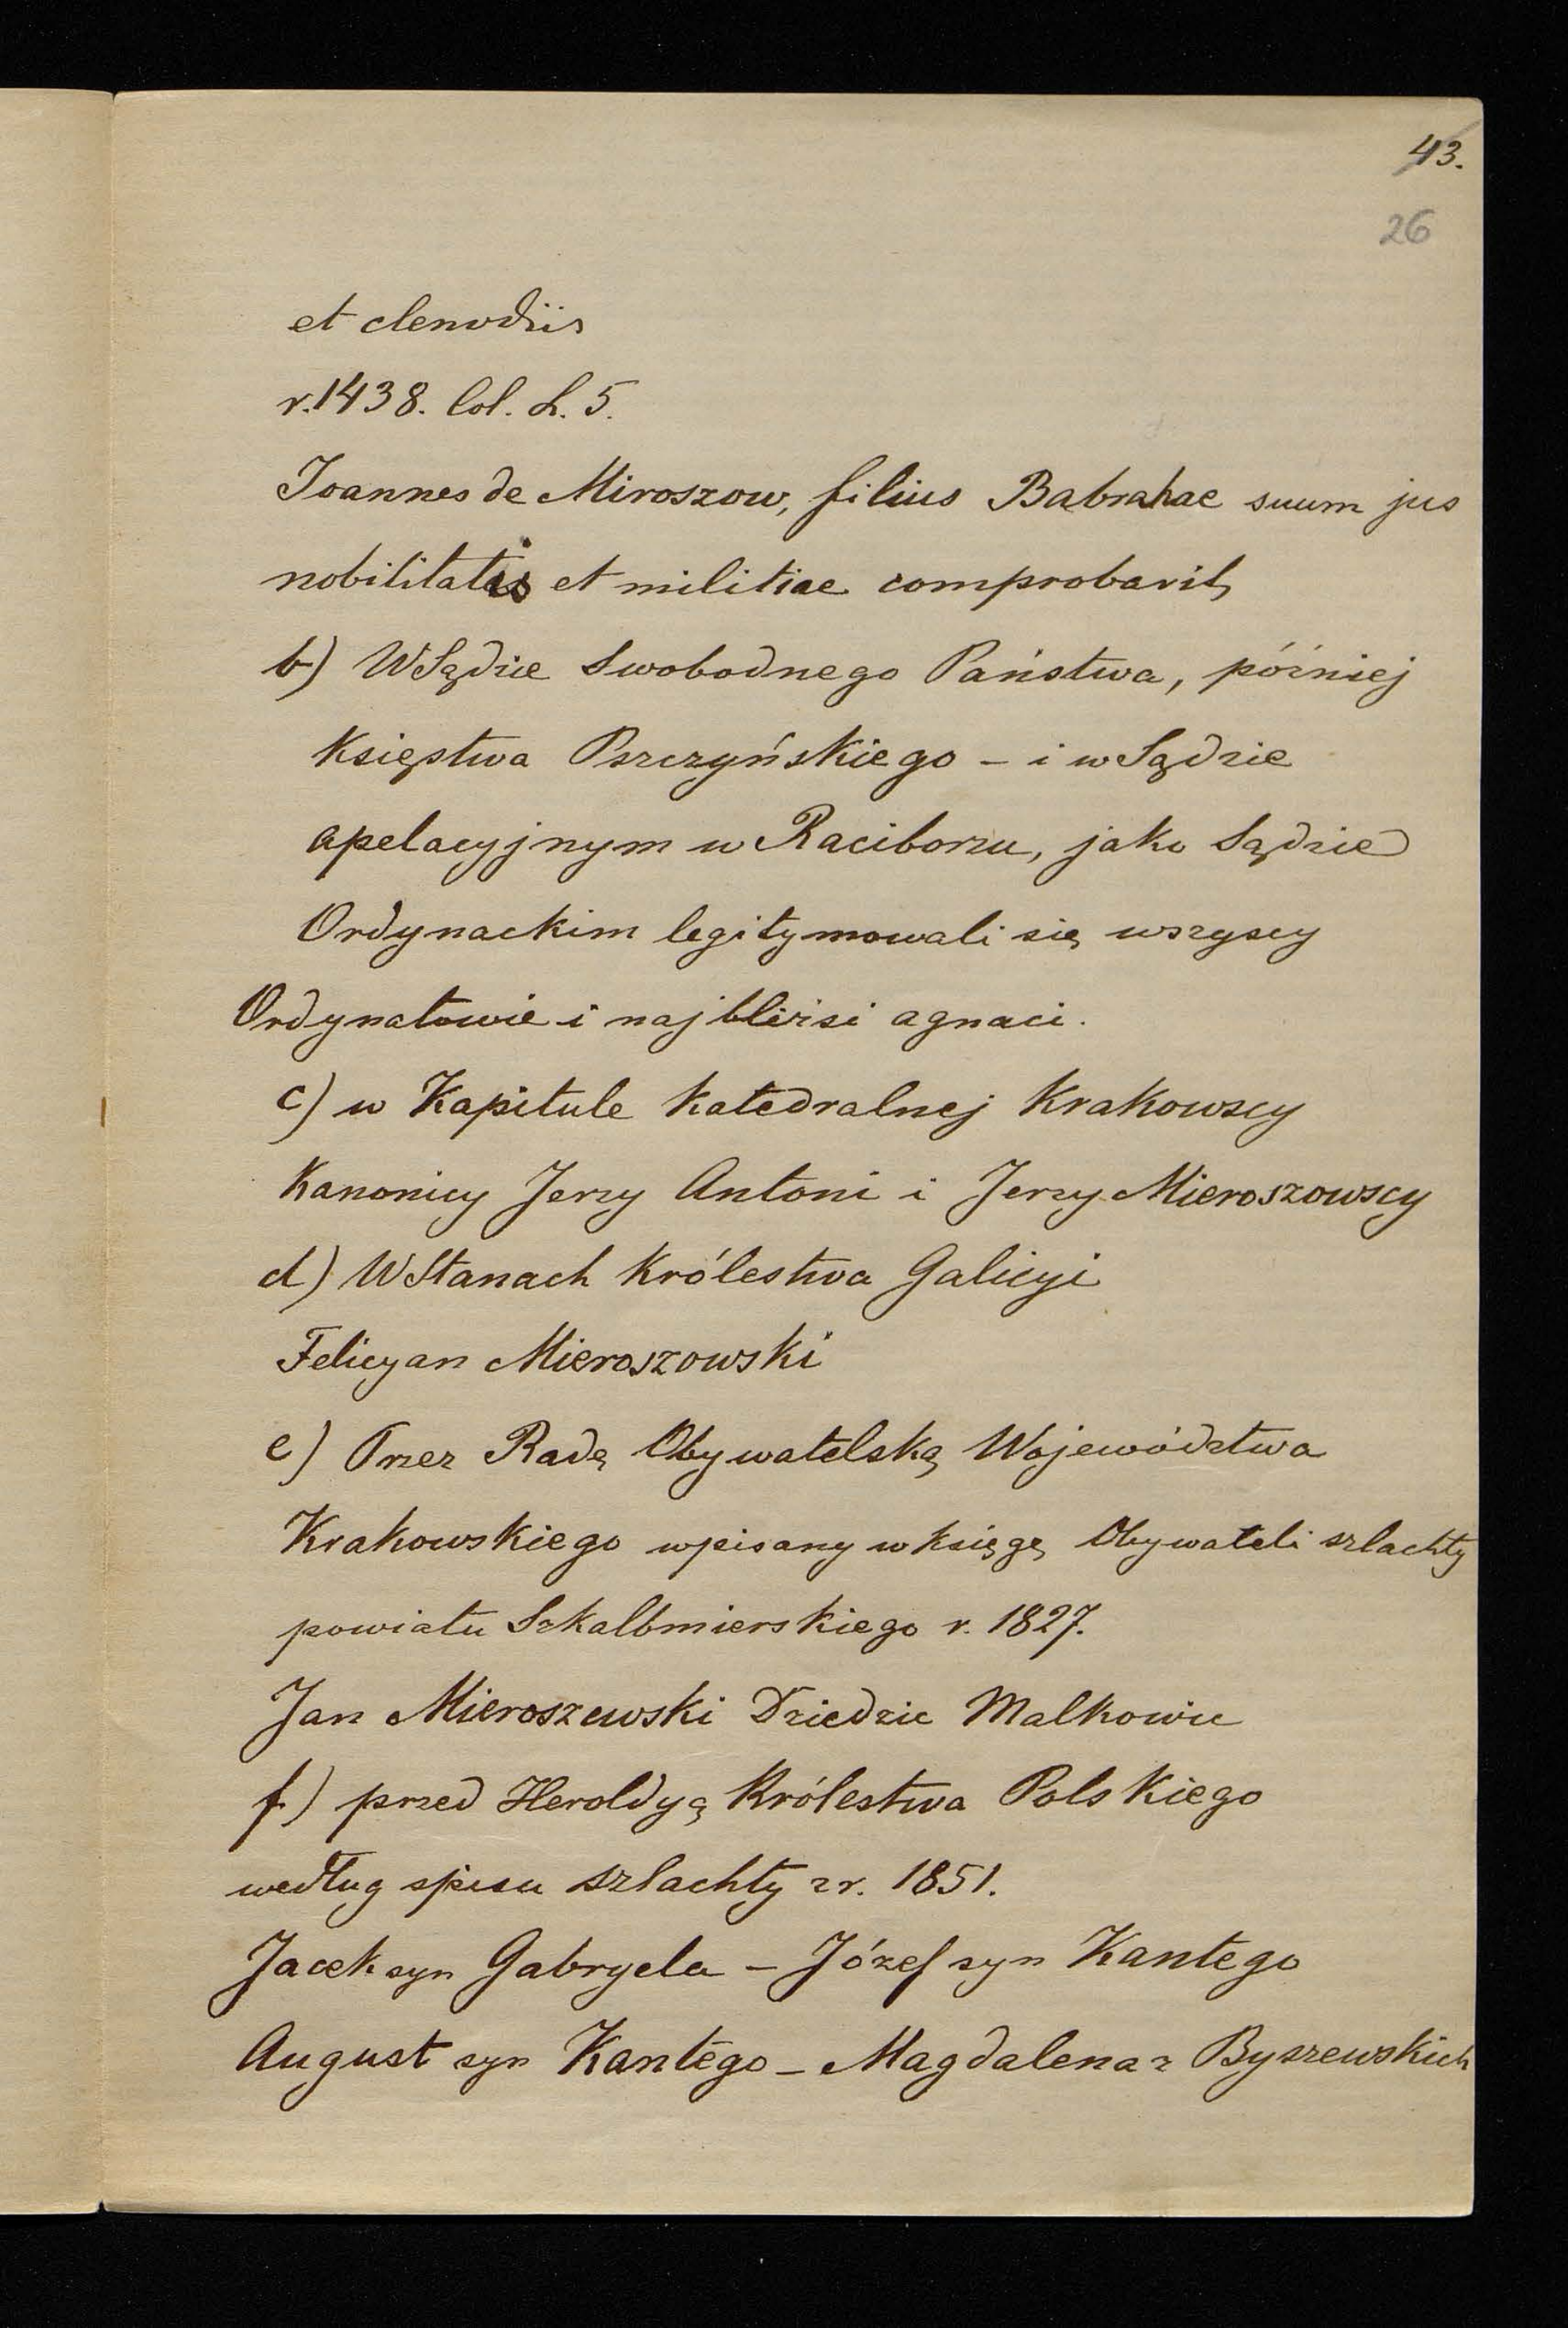 43.
26
et clenodiis
r. 1438. Col. L. 5.
Joannes de Miroszow, filius Babrahae suum jus
nobilitatis et militiae comprobavit,
b) W Sądzie Swobodnego Państwa, później
Księstwa Pszczyńskiego – i w Sądzie
apelacyjnym w Raciborzu, jako Sądzie
Ordynackim legitymowali się wszyscy
Ordynatowie i najbliżsi agnaci.
c) w Kapitule Katedralnej Krakowscy
Kanonicy Jerzy Antoni i Jerzy Mieroszowscy
d) W Stanach Królestwa Galicyi
Felicyan Mieroszowski
e) Przez Radę Obywatelską Województwa
Krakowskiego wpisany w księgę Obywateli szlachty
powiatu Szkalbmierskiego r. 1827.
Jan Mieroszewski Dziedzic Malkowic
f) przed Heroldyą Królestwa Polskiego
według spisu szlachty z r. 1851.
Jacek syn Gabryela – Józef syn Kantego
August syn Kantego – Magdalena z Byszewskich